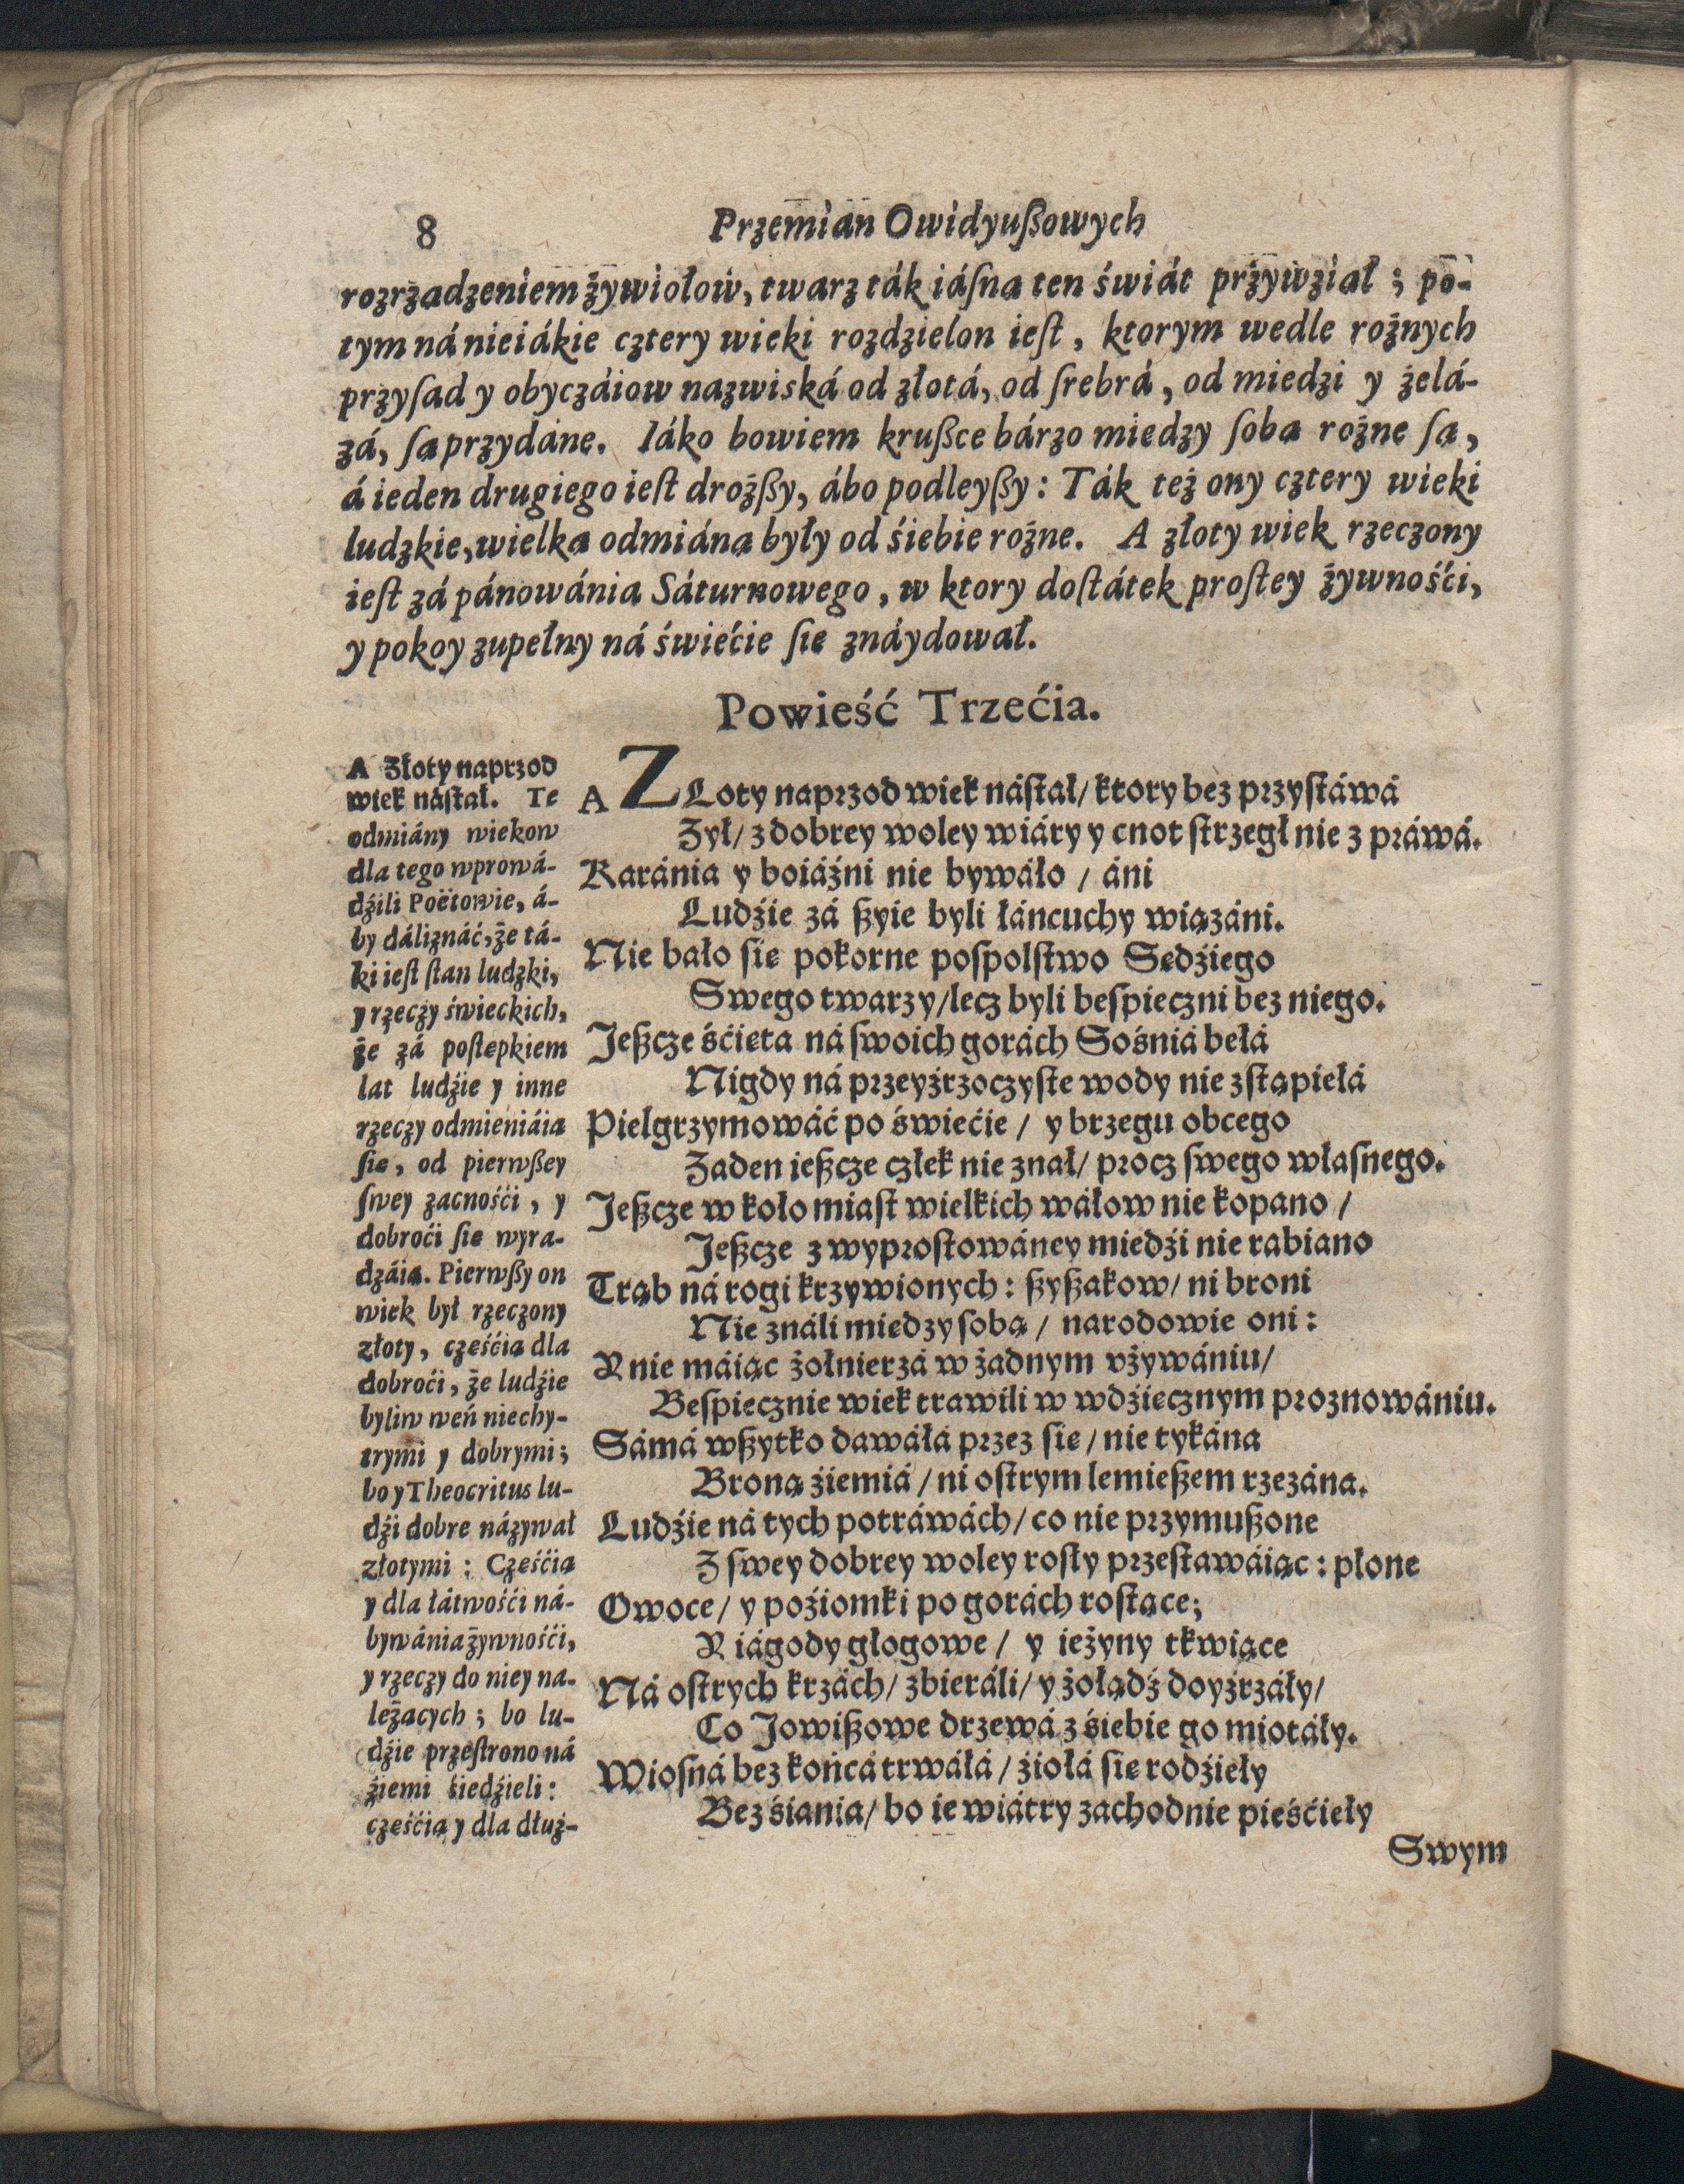 8 Przemian Owidyußowych
rozrządzeniem żywiołow, twarz ták iáſna ten świát przywźiał; po-
tym ná nieiákie cztery wieki rozdzielon ieſt, ktorym wedle rożnych
przyſad y obyczáiow nazwiská od złotá, od ſrebrá, od miedzi y żelá-
zá, ſą przydáne. Iáko bowiem krußce bárzo miedzy ſobą rożne ſą,
á ieden drugiego ieſt drożßy, ábo podleyßy: Ták też ony cztery wieki
ludzkie, wielką odmiáną były od śiebie rożne. A złoty wiek rzeczony
ieſt zá pánowánia Sáturnowego, w ktory doſtátek proſtey żywnośći,
y pokoy zupełny ná świećie ſię znáydował.
Powieść Trzećia.
A Złoty naprzod
wiek náſtał. Te
odmiány wiekow
dla tego wprowá-
dźili Poëtowie, á-
by dáli znáć, że tá-
ki ieſt ſtan ludzki,
y rzeczy świeckich,
że zá poſtępkiem
lat ludźie y inne
rzeczy odmieniáią
ſię, od pierwßey
ſwey zacnośći, y
dobroći ſię wyra-
dzáią. Pierwßy on
wiek był rzeczony
złoty, częśćią dla
dobroći, że ludźie
byli w weń niechy-
trymi y dobrymi;
bo y Theocritus lu-
dźi dobre názywał
złotymi: Częśćią
y dla łátwośći ná-
bywánia żywnośći,
y rzeczy do niey na-
leżących; bo lu-
dźie przeſtrono ná
źiemi śiedźieli:
częśćią y dla dłuż-
A ZLoty naprzod wiek náſtał/ ktory bez przyſtáwá
Zył/ z dobrey woley wiáry y cnot ſtrzegł nie z práwá.
Karánia y boiáźni nie bywáło / áni
Ludźie zá ßyie byli łáncuchy wiązáni.
Nie bało ſię pokorne poſpolſtwo Sędźiego
Swego twarzy/ lecz byli beſpieczni bez niego.
Jeßcze śćięta ná ſwoich gorách Sośniá bełá
Nigdy ná przeyźrzoczyſte wody nie zſtąpiełá
Pielgrzymowáć po świećie / y brzegu obcego
Zaden ießcze człek nie znał/ procz ſwego własnego.
Jeßcze w koło miaſt wielkich wáłow nie kopano /
Jeßcze z wyproſtowáney miedźi nie rabiano
Trąb ná rogi krzywionych: ßyßakow/ ni broni
Nie ználi miedzy ſobą / narodowie oni:
Y nie máiąc żołnierzá w żadnym vżywániu/
Beſpiecznie wiek trawili w wdźięcznym proznowániu.
Sámá wßytko dawáłá przez ſię / nie tykána
Broną źiemiá / ni oſtrym lemießem rzezána.
Ludźie ná tych potráwách/ co nie przymußone
Z ſwey dobrey woley roſły przeſtawáiąc: płone
Owoce/ y poźiomki po gorách roſtące;
Y iágody głogowe / y ieżyny tkwiące
Ná oſtrych krzách/ zbieráli/ y żołądź doyźrzáły/
Co Jowißowe drzewá z śiebie go miotáły.
Wioſná bez końcá trwáłá / źiołá ſię rodźieły
Bez śiania/ bo ie wiátry zachodnie pieśćieły
Swym